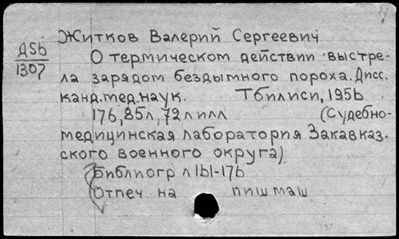 Д56
1307
Житков Валерий Сергеевич
О термическом действии выстре-
ла зарядом бездымного пороха. Дисс.
канд. мед. наук. Тбилиси, 1956
176, 85л, 72л илл (Судебно-
медицинская лаборатория Закавказ.
ского военного округа)
Библиогр л 161-176
Отпеч. на пишмаш